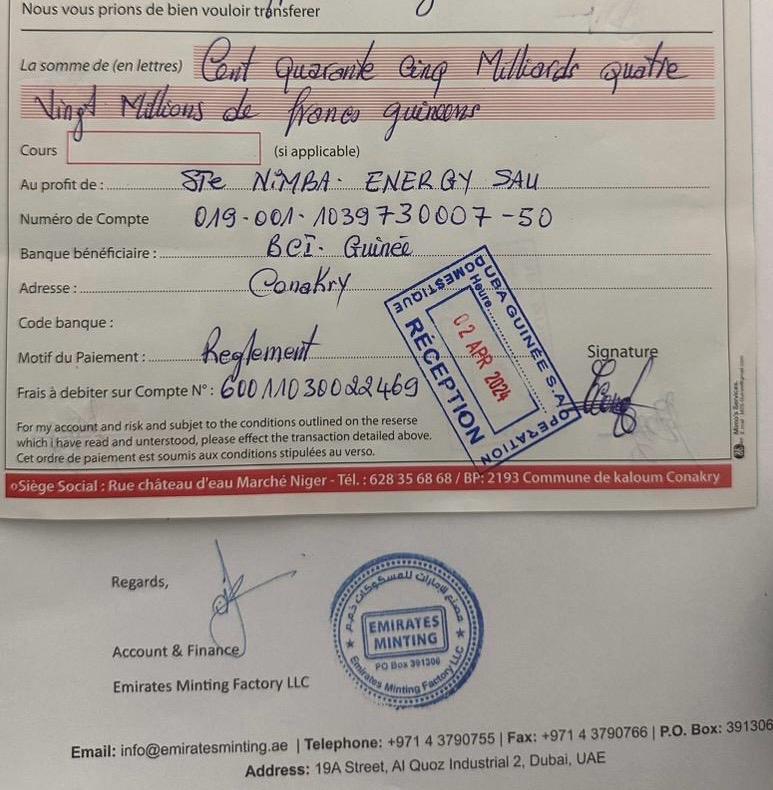 Nous vous prions de bien vouloir transferer
La somme de (en lettres) Cent Quarante Cinq Milliards quatre
Vingt Millions de francs guineens
Cours (si applicable)
Au profit de : STe NiMBA - ENERGY SAU
Numéro de Compte 019-001-1039730007-50
Banque bénéficiaire : BCI - Guinée
Adresse : Conakry
Code banque :
Motif du Paiement : Reglement
Frais à debiter sur Compte N° : 60011030022469
For my account and risk and subjet to the conditions outlined on the reserse
which i have read and understood, please effect the transaction detailed above.
Cet ordre de paiement est soumis aux conditions stipulées au verso.
DUBA GUINÉE S.A
OPERATION
DOMESTIQUE
Heure
02 APR 2024
RÉCEPTION
Signature
Mimo's Services.
Siège Social : Rue château d'eau Marché Niger - Tél. : 628 35 68 68 / BP: 2193 Commune de kaloum Conakry
Regards,
Account & Finance
Emirates Minting Factory LLC
مصنع الإمارات للمسكوكات ذ.م.م
EMIRATES
MINTING
PO Box 391306
Emirates Minting Factory LLC
Email: info@emiratesminting.ae | Telephone: +971 4 3790755 | Fax: +971 4 3790766 | P.O. Box: 391306
Address: 19A Street, Al Quoz Industrial 2, Dubai, UAE